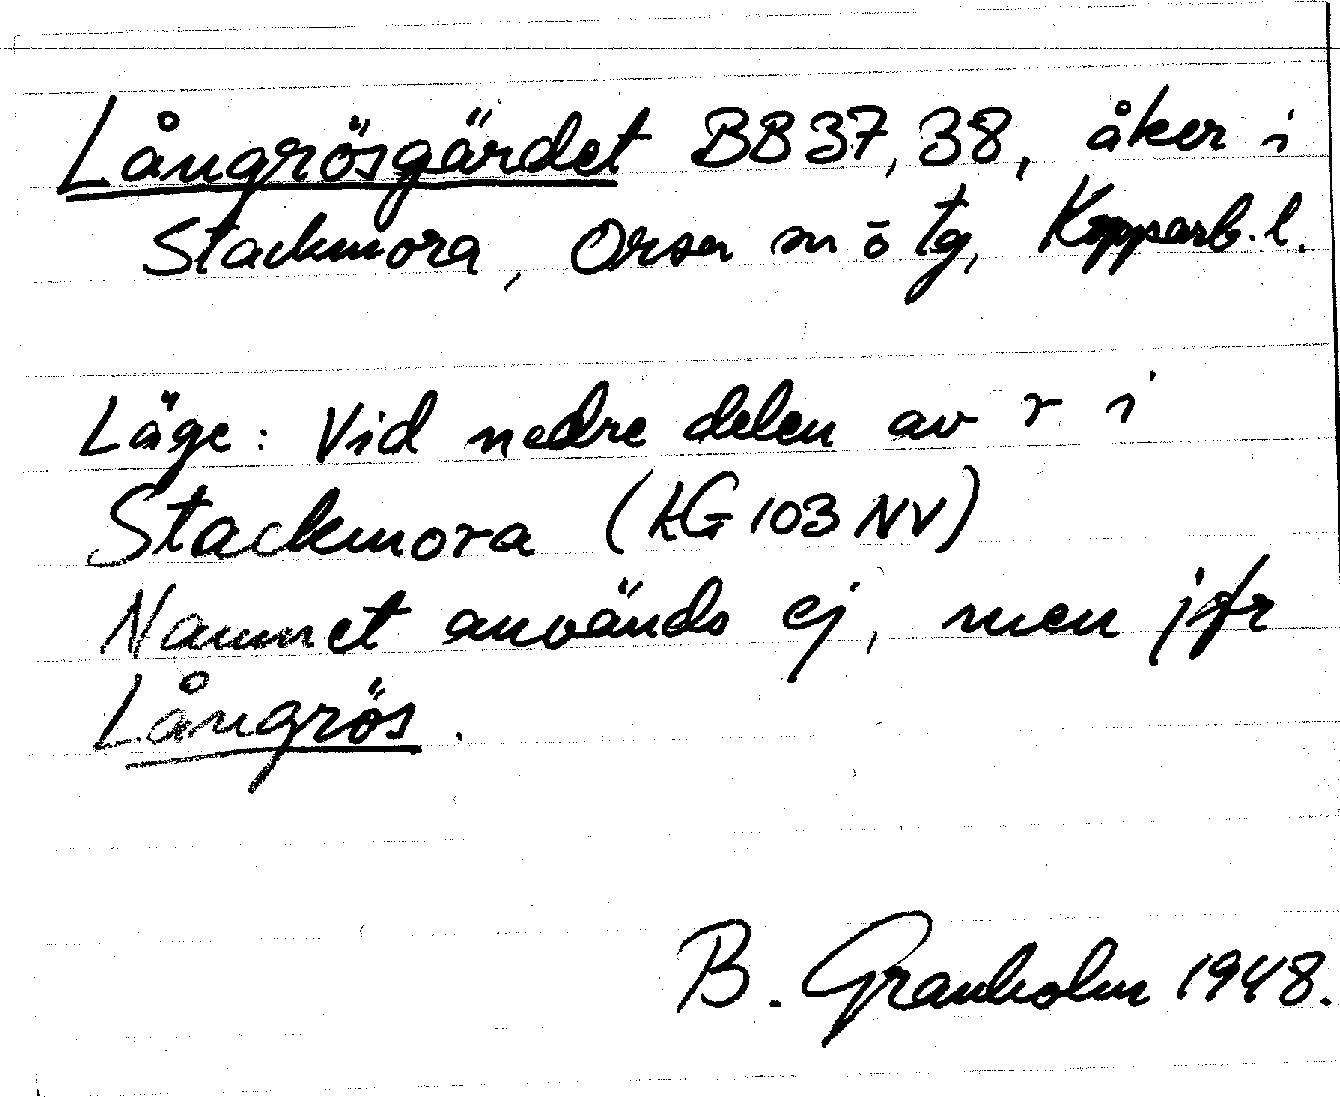 Långrösgärdet BB37, 38, åker i
Stackmora, Orsa sn ö tg, Kopparb. l.
Läge: Vid nedre delen av r i
Stackmora (LG 103 NV)
Namnet används ej, men jfr
Långrös.
B. Granholm 1948.